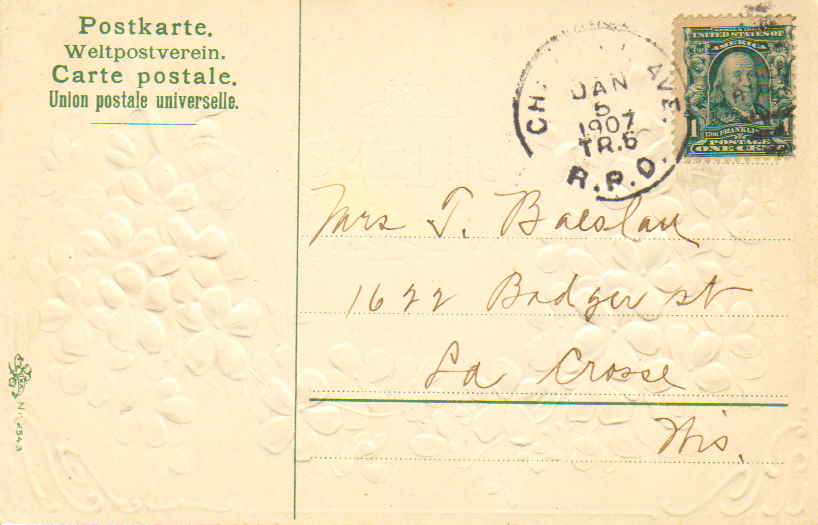 Postkarte.
Weltpostverein.
Carte postale.
Union postale universelle.
AVE.
JAN
5
1907
TR.5
R.P.O.
UNITED STATES OF
AMERICA
1
FRANKLIN
POSTAGE
ONE CENT
Mrs T. Baeslau
1622 Badger st
La Crosse
Wis.